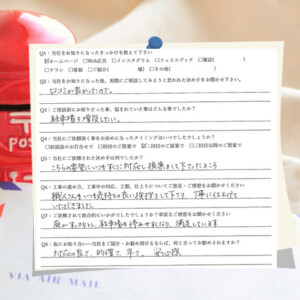 Q1：当社をお知りになったきっかけを教えて下さい
☑ホームページ □Web広告 □インスタグラム □フェイスブック □雑誌( )
□チラシ □看板 □ご紹介( 様) □その他( )
Q2：当社をお知りになった後、実際にご相談してみようと思われた決め手をお聞かせ下さい。
口コミが良かったので。
Q3：ご相談前にお困りだった事、悩まれていた事はどんな事でしたか？
駐車場を増設したい。
Q4：当社にご依頼頂く事をお決めになったタイミングはいつでしたでしょうか？
Q5：当社にご依頼された決め手は何でしたか？
こちらの要望にいつもすぐに対応し提案して下さったところ
Q6：工事の進め方、工事中の対応、工期、仕上りについてご意見・ご感想をお聞かせください
職人さんもいつも気持ちの良い挨拶をして下さり、丁寧に仕上げて
いただきました
Q7：ご依頼されて総合的にいかがでしたでしょうか？率直なご感想をお聞かせください
庭がすっきりし、駐車場も停めやすくなり、満足しています
Q8：仮にお知り合いへ当社をご紹介・お勧め頂けるならば、何と言ってお勧めされますか？
対応の良さ、的確さ、早さ。安心感
VIA AIR MAIL
POS